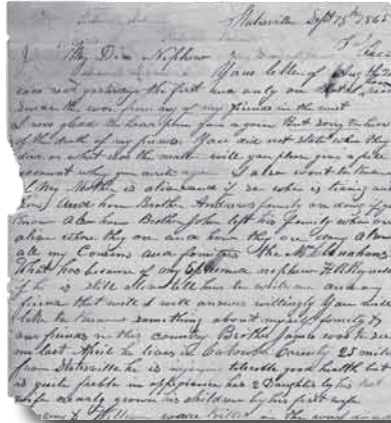 Statesville Sept 15th 186
My Dear Nephew
Yours letter of Aug the
came yesterday the first and only one
since the war from any of my friends in the west
I was glad to hear from you again But sorry to hear
of the death of my friends You did not state when they
died or what was the matter will you please give a full
account when you write again I also want to know
if My Mother is alive and if so who is living
And how Brother Andrews family are doing if you
know Also how Brother John left his family when
alive where they are and how they are doing Also
all my Cousins and families the
What has become of my nephew
if he is still alive tell him to write me and any
friend that will I will answer willingly You would
like to know something about myself family &
our friends in this country Brother James was to see
me last April he lives in County 25 miles
from Statesville he is enjoying tolerable good health but
is quite feeble in appearance has 2 Daughters by his last
wife nearly grown his children by his first wife
& William were killed in the war